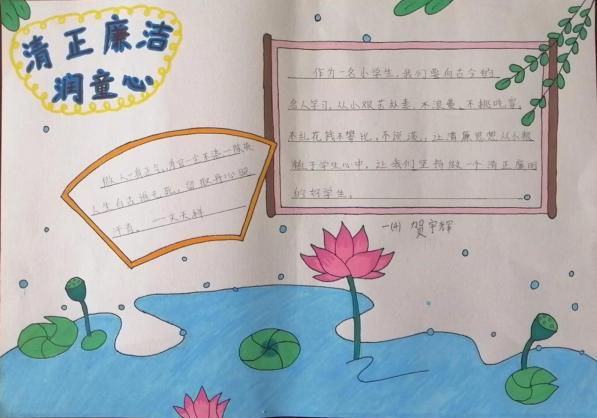 清正廉洁
润童心
作为一名小学生,我们要向古今的
名人学习,从小艰苦朴素,不浪费、不挑吃穿,
不乱花钱不攀比,不说谎,让清廉思想从小根
植于学生心中,让我们坚持做一个清正廉明
的好学生。
做人一身正气,为官一尘不染。—陈毅
人生自古谁无死,留取丹心照
汗青。——文天祥
一(4) 贺宇辉